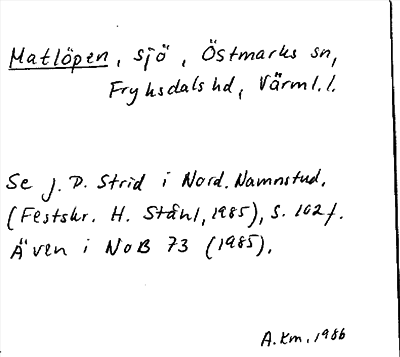 Matlöpen, sjö, Östmarks sn,
Fryksdals hd, Värml. l.
Se J. P. Strid i Nord. Namnstud.
(Festskr. H. Ståhl, 1985), s. 102 f.
Även i NoB 73 (1985).
A. Km. 1986